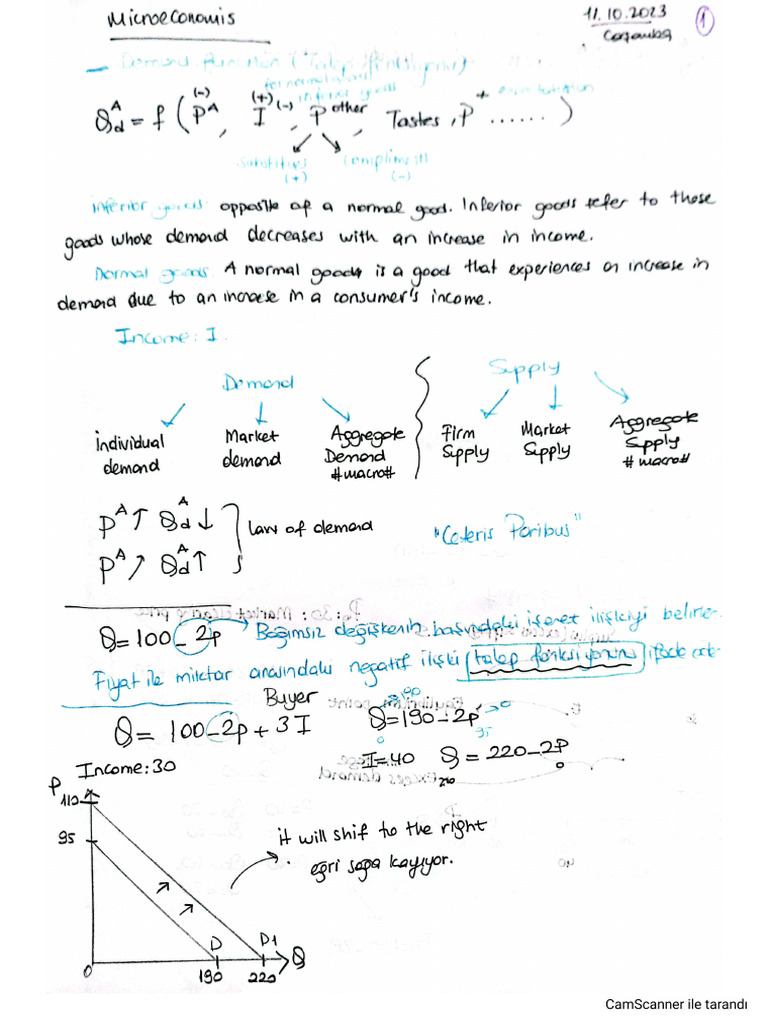 Microeconomis
11.10.2023
Çarşamba
1
— Demand function (Talep fonksiyonu)
for normal goods
inferior goods
Q_d^A = f ( P^A (-), I (+) (-), P^other, Tastes, P^+ ...... )
Substitues (+) Compliments (-)
Inferior goods: opposite of a normal good. Inferior goods refer to those
goods whose demand decreases with an increase in income.
Normal goods: A normal goods is a good that experiences an increase in
demand due to an increase in a consumer's income.
Income: I.
Demand
Supply
Individual demand
Market demand
Aggregate Demand #macro#
Firm Supply
Market Supply
Aggregate Supply #macro#
P^A ↑ Q_d^A ↓
law of demand
"Ceteris Paribus"
P^A ↗ Q_d^A ↑
Q=100-2p → Bağımsız değişkenin başındaki işaret ilişkiyi belirler.
Fiyat ile miktar arasındaki negatif ilişki talep fonksiyonunu ifade eder.
Buyer
Q = 100-2p+3I
Q=190-2p
190
0
0
95
Income:30
I=40 Q = 220-2p
0
220
P
110
95
it will shif to the right
eğri sağa kayıyor.
D D1 Q
0 190 220
CamScanner ile tarandı